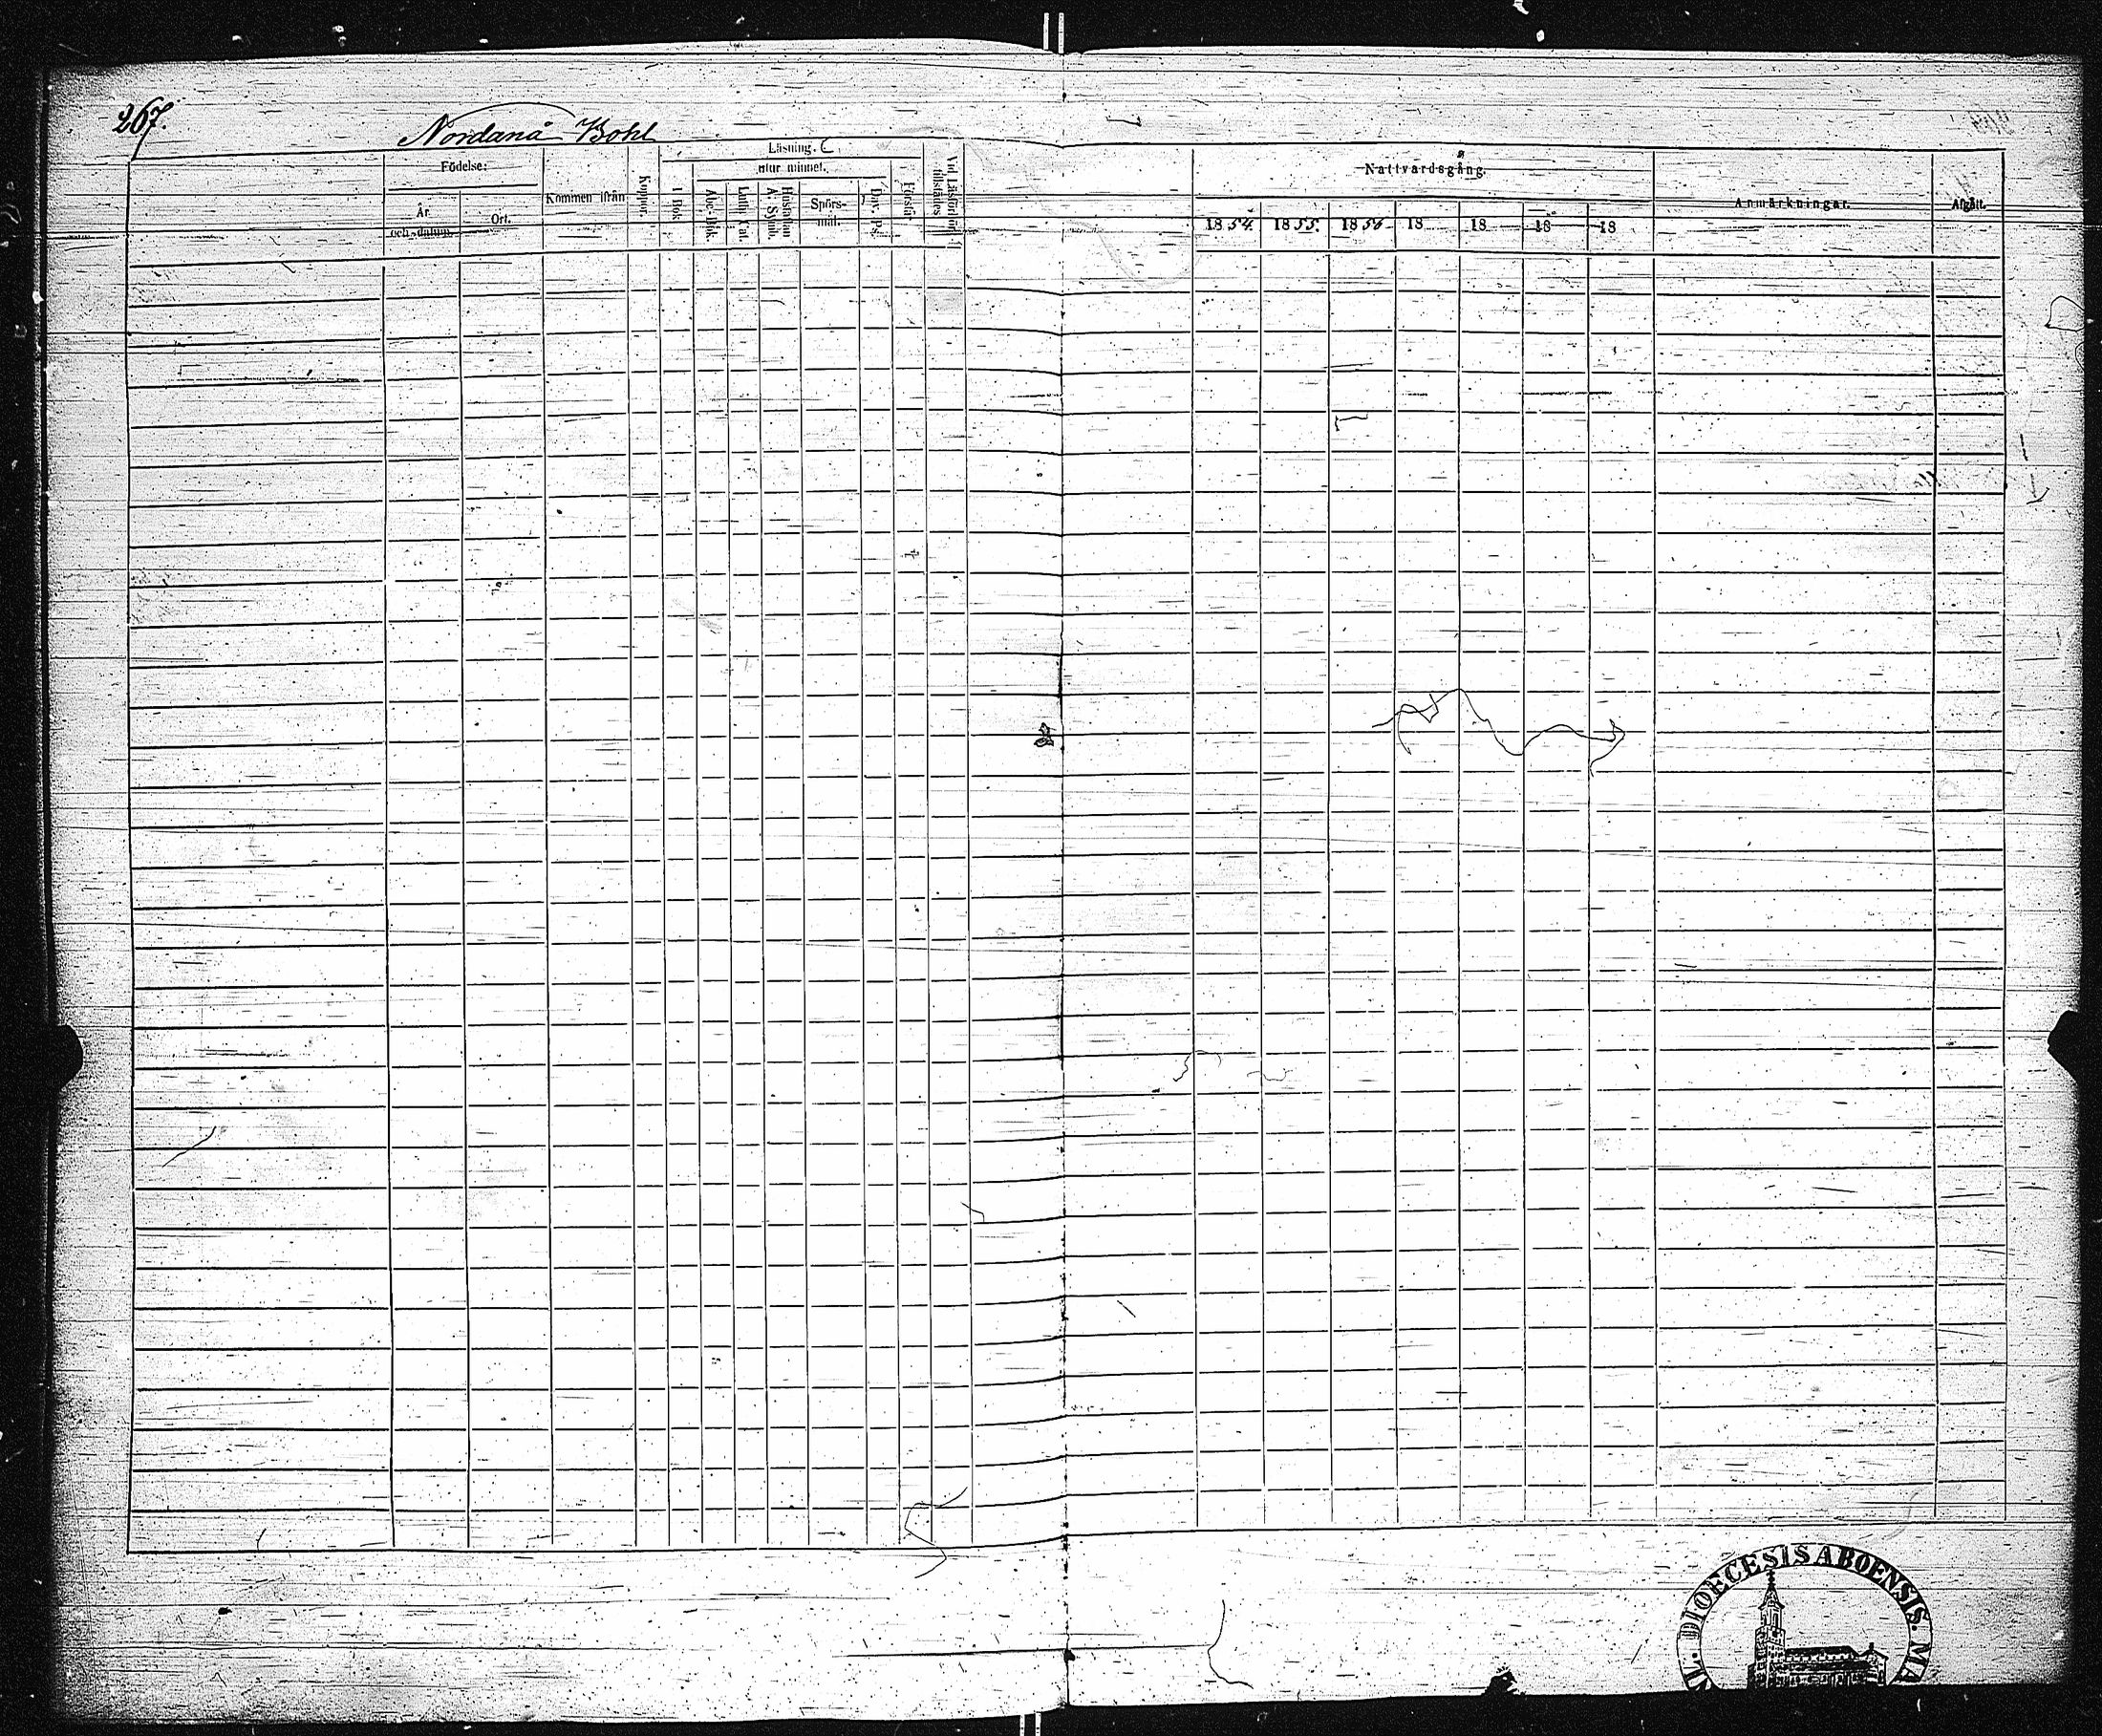 267.
Nordanå Bohl
Födelse:
År
och datum.
Ort.
Kommen ifrån
Koppor.
Läsning.
utur minnet.
I Bok.
Abc-Bok.
Luth. Cat.
Hustaflan
A. Symb.
Spörs-
mål.
Dav. Ps.
Förstår
Vid Läsförhör
tillstädes
Nattvardsgång.
1854.
1855.
1856
18
18
18
18
Anmärkningar.
Afgått.
DIOECESIS ABOENSIS. MA